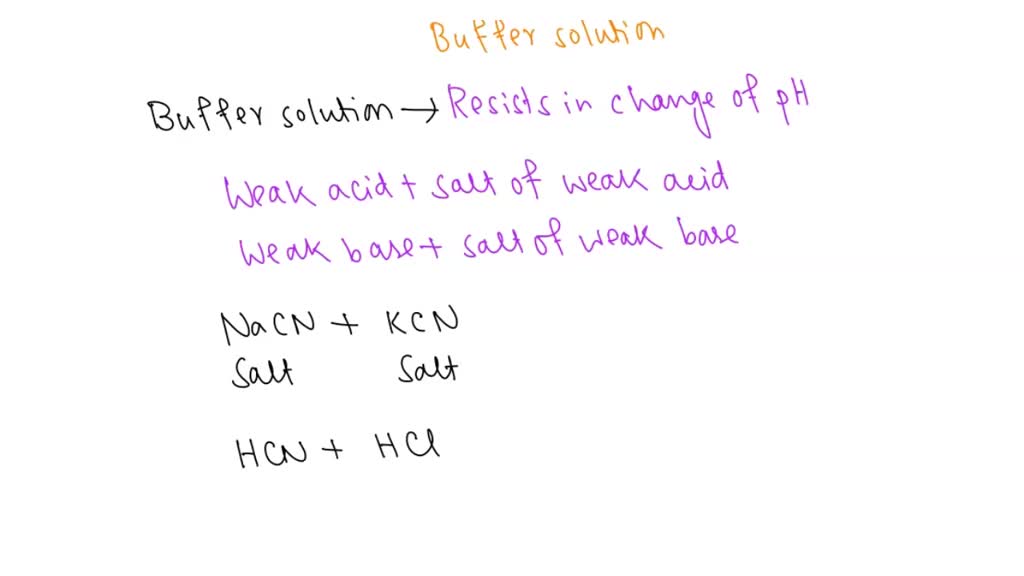 Buffer solution
Buffer solution → Resists in change of pH
Weak acid + salt of weak acid
Weak base + salt of weak base
NaCN + KCN
Salt Salt
HCN + HCl